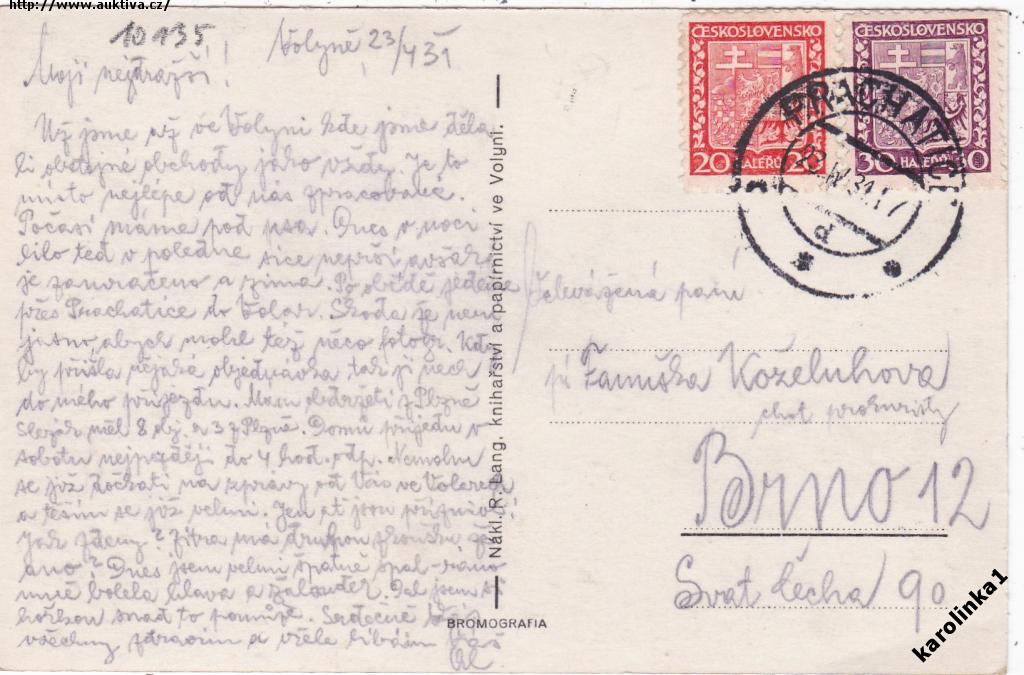 http://www.auktiva.cz/
10135
Volyně 23/4 31
Moji nejdražší!
Už jsme až ve Volyni kde jsme děla-
li obvyjné obchody jako vždy. Je to
místo nejlépe od nás zpracované.
Počasí máme pod psa. Dnes v noci
lilo teď v poledne sice neprší avšak
je zamračeno a zima. Po obědě jedeme
přes Prachatice do Volar. Škoda že není
jasno abych mohl též něco fotogr. Kdy
by přišla nějaká objednávka tak ji nech
do mého příjezdu. Mám obdržeti z Plzně
Slezák měl 8 obj. a 3 z Plzně. Domů přijedu v
sobotu nejpozději do 4 hod. odp. Nemohu
se již dočkati na zprávy od Vás ve Volarech
a těším se již velmi. Jen ať jsou příznivé!
Jak Zdeny? Zítra má druhou zkoušku že
ano? Dnes jsem velmi špatně spal - ráno
mně bolela hlava a žaludek. Dal jsem si
hořkou snad to pomůže. Srdečně Vás
všechny zdravím a vřele líbám Váš
ČESKOSLOVENSKO
20 HALÉŘŮ 20
ČESKOSLOVENSKO
30 HALÉŘŮ 30
PRACHATICE
23.IV.31.17
d
Velevážená paní
pí Fanuška Koželuhova
chot prokuristy
Brno 12
Svat. Čecha 90
Nákl. R. Lang, knihařství a papírnictví ve Volyni.
BROMOGRAFIA
karolinka1